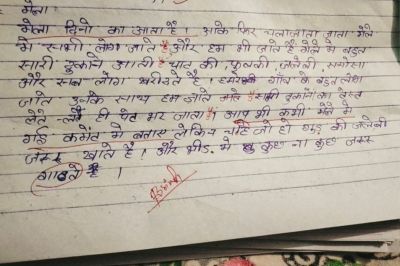 मेला
मेला दिनो का आता है। आके फिर चलाजाता जाता मेले
मे सभी लोग जाते है और हम भी जाते है मेले मे बहुत
सारी दुकाने आती चाट की, फुलकी, जलेबी, समोसा
और सब लोग खरीदते है। हमारे गाँव के बहुत लोग
जाते उनके साथ हम जाते सभी दुकानों का टेस्ट
लेते ही पेट भर जाता है। आप भी कभी मेले मे
गई कमेंट मे बताए लेकिन चाहे जो हो की जलेबी
जरूर खाते है। और भीड मे कुछ ना कुछ जरूर
है।